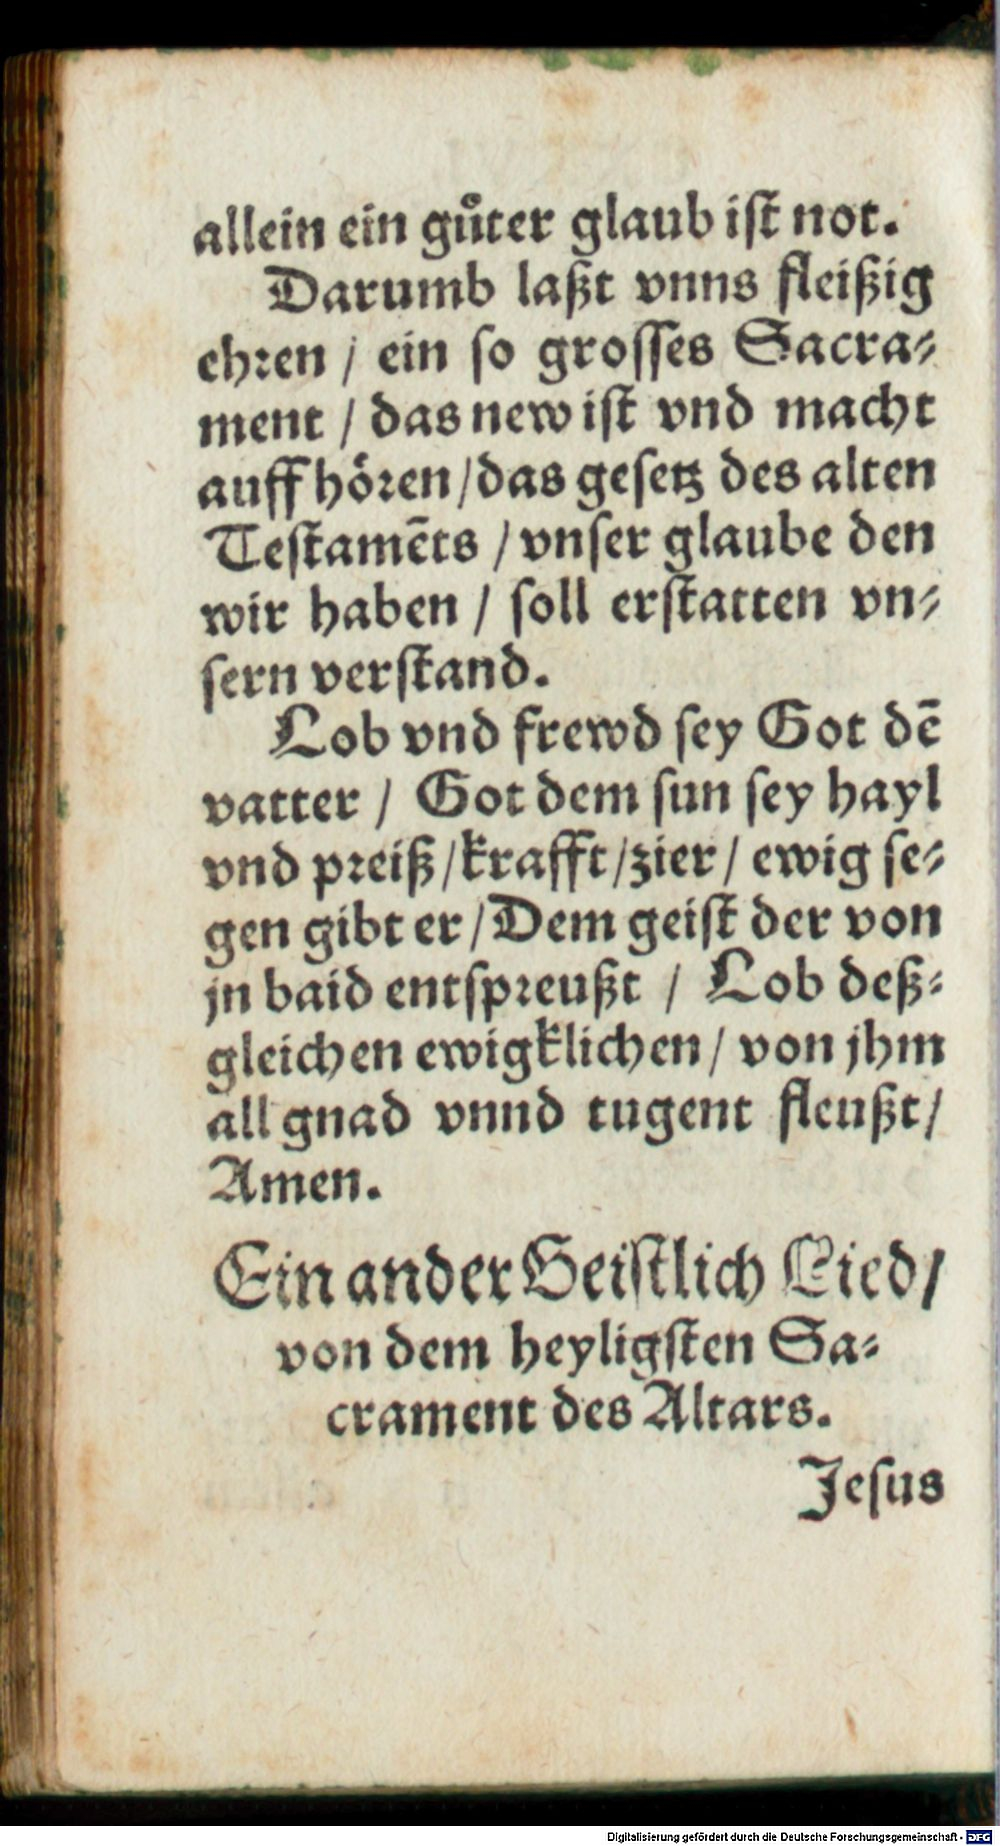 allein ein guͦter glaub iſt not.
Darumb laßt vnns fleißig
ehꝛen / ein ſo groſſes Sacra⸗
ment / das new iſt vnd macht
auff hoͤꝛen / das geſetz des alten
Teſtamēts / vnſer glaube den
wir haben / ſoll erſtatten vn⸗
ſern verſtand.
Lob vnd frewd ſey Got dē
vatter / Got dem ſun ſey hayl
vnd pꝛeiß / krafft / zier / ewig ſe⸗
gen gibt er / Dem geiſt der von
jn baid entſpꝛeußt / Lob deß⸗
gleichen ewigklichen / von jhm
all gnad vnnd tugent fleußt /
Amen.
Ein ander Geiſtlich Lied /
von dem heyligſten Sa⸗
crament des Altars.
Jeſus
Digitalisierung gefördert durch die Deutsche Forschungsgemeinschaft - DFG